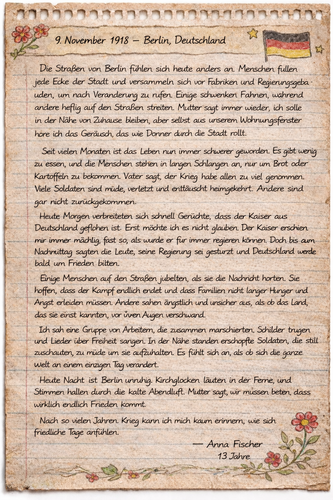 9. November 1918 – Berlin, Deutschland
Die Straßen von Berlin fühlen sich heute anders an. Menschen füllen
jede Ecke der Stadt und versammeln sich vor Fabriken und Regierungsgebä
uden, um nach Veränderung zu rufen. Einige schwenken Fahnen, während
andere heftig auf den Straßen streiten. Mutter sagt immer wieder, ich solle
in der Nähe von Zuhause bleiben, aber selbst aus unserem Wohnungsfenster
höre ich das Geräusch, das wie Donner durch die Stadt rollt.
Seit vielen Monaten ist das Leben nun immer schwerer geworden. Es gibt wenig
zu essen, und die Menschen stehen in langen Schlangen an, nur um Brot oder
Kartoffeln zu bekommen. Vater sagt, der Krieg habe allen zu viel genommen.
Viele Soldaten sind müde, verletzt und enttäuscht heimgekehrt. Andere sind
gar nicht zurückgekommen.
Heute Morgen verbreiteten sich schnell Gerüchte, dass der Kaiser aus
Deutschland geflohen ist. Erst möchte ich es nicht glauben. Der Kaiser erschien
mir immer mächtig, fast so, als würde er für immer regieren können. Doch bis zum
Nachmittag sagten die Leute, seine Regierung sei gestürzt und Deutschland werde
bald um Frieden bitten.
Einige Menschen auf den Straßen jubelten, als sie die Nachricht hörten. Sie
hoffen, dass der Kampf endlich endet und dass Familien nicht länger Hunger und
Angst erleiden müssen. Andere sahen ängstlich und unsicher aus, als ob das Land,
das sie einst kannten, vor ihren Augen verschwand.
Ich sah eine Gruppe von Arbeitern, die zusammen marschierten, Schilder trugen
und Lieder über Freiheit sangen. In der Nähe standen erschöpfte Soldaten, die still
zuschauten, zu müde um sie aufzuhalten. Es fühlt sich an, als ob sich die ganze
Welt an einem einzigen Tag verändert.
Heute Nacht ist Berlin unruhig. Kirchglocken läuten in der Ferne, und
Stimmen hallen durch die kalte Abendluft. Mutter sagt, wir müssen beten, dass
wirklich endlich Frieden kommt.
Nach so vielen Jahren Krieg kann ich mich kaum erinnern, wie sich
friedliche Tage anfühlen.
— Anna Fischer
13 Jahre